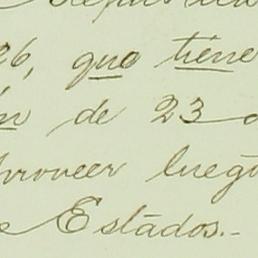 26, que tiene
de 23
proveer luego
Estados.-